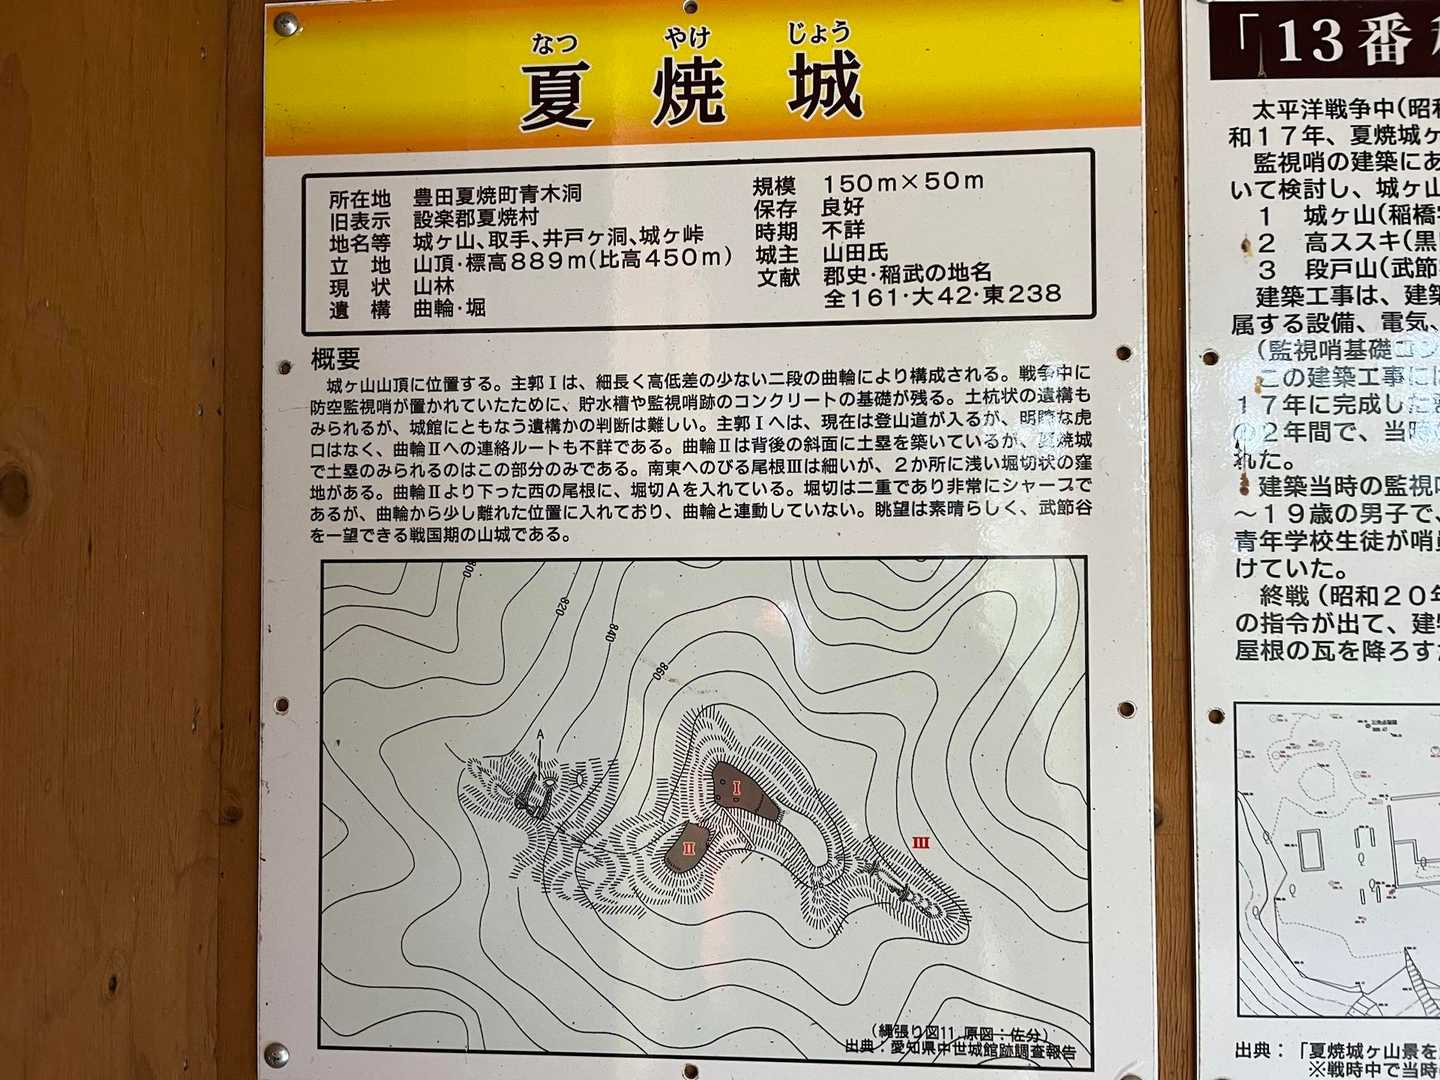 なつ やけ じょう
夏焼城
所在地 豊田夏焼町青木洞
旧表示 設楽郡夏焼村
地名等 城ヶ山、取手、井戸ヶ洞、城ヶ峠
立地 山頂・標高889m(比高450m)
現状 山林
遺構 曲輪・堀
規模 150m×50m
保存 良好
時期 不詳
城主 山田氏
文献 郡史・稲武の地名
全161・大42・東238
概要
城ヶ山山頂に位置する。主郭Ⅰは、細長く高低差の少ない二段の曲輪により構成される。戦争中に
防空監視哨が置かれていたために、貯水槽や監視哨跡のコンクリートの基礎が残る。土杭状の遺構も
みられるが、城館にともなう遺構かの判断は難しい。主郭Ⅰへは、現在は登山道が入るが、明瞭な虎
口はなく、曲輪Ⅱへの連絡ルートも不詳である。曲輪Ⅱは背後の斜面に土塁を築いているが、夏焼城
で土塁のみられるのはこの部分のみである。南東へのびる尾根Ⅲは細いが、2か所に浅い堀切状の窪
地がある。曲輪Ⅱより下った西の尾根に、堀切Aを入れている。堀切は二重であり非常にシャープで
あるが、曲輪から少し離れた位置に入れており、曲輪と連動していない。眺望は素晴らしく、武節谷
を一望できる戦国期の山城である。
800
820
840
860
A
Ⅰ
Ⅱ
Ⅲ
(縄張り図11 原図:佐分)
出典:愛知県中世城館跡調査報告
「13番
太平洋戦争中(昭和
和17年、夏焼城ヶ
監視哨の建築にあ
いて検討し、城ヶ山
1 城ヶ山(稲橋
2 高ススキ(黒
3 段戸山(武節
建築工事は、建築
属する設備、電気、
(監視哨基礎コン
この建築工事には
17年に完成した
の2年間で、当時
れた。
建築当時の監視哨
～19歳の男子で、
青年学校生徒が哨員
けていた。
終戦(昭和20年
の指令が出て、建物
屋根の瓦を降ろすた
出典:「夏焼城ヶ山景を
※戦時中で当時